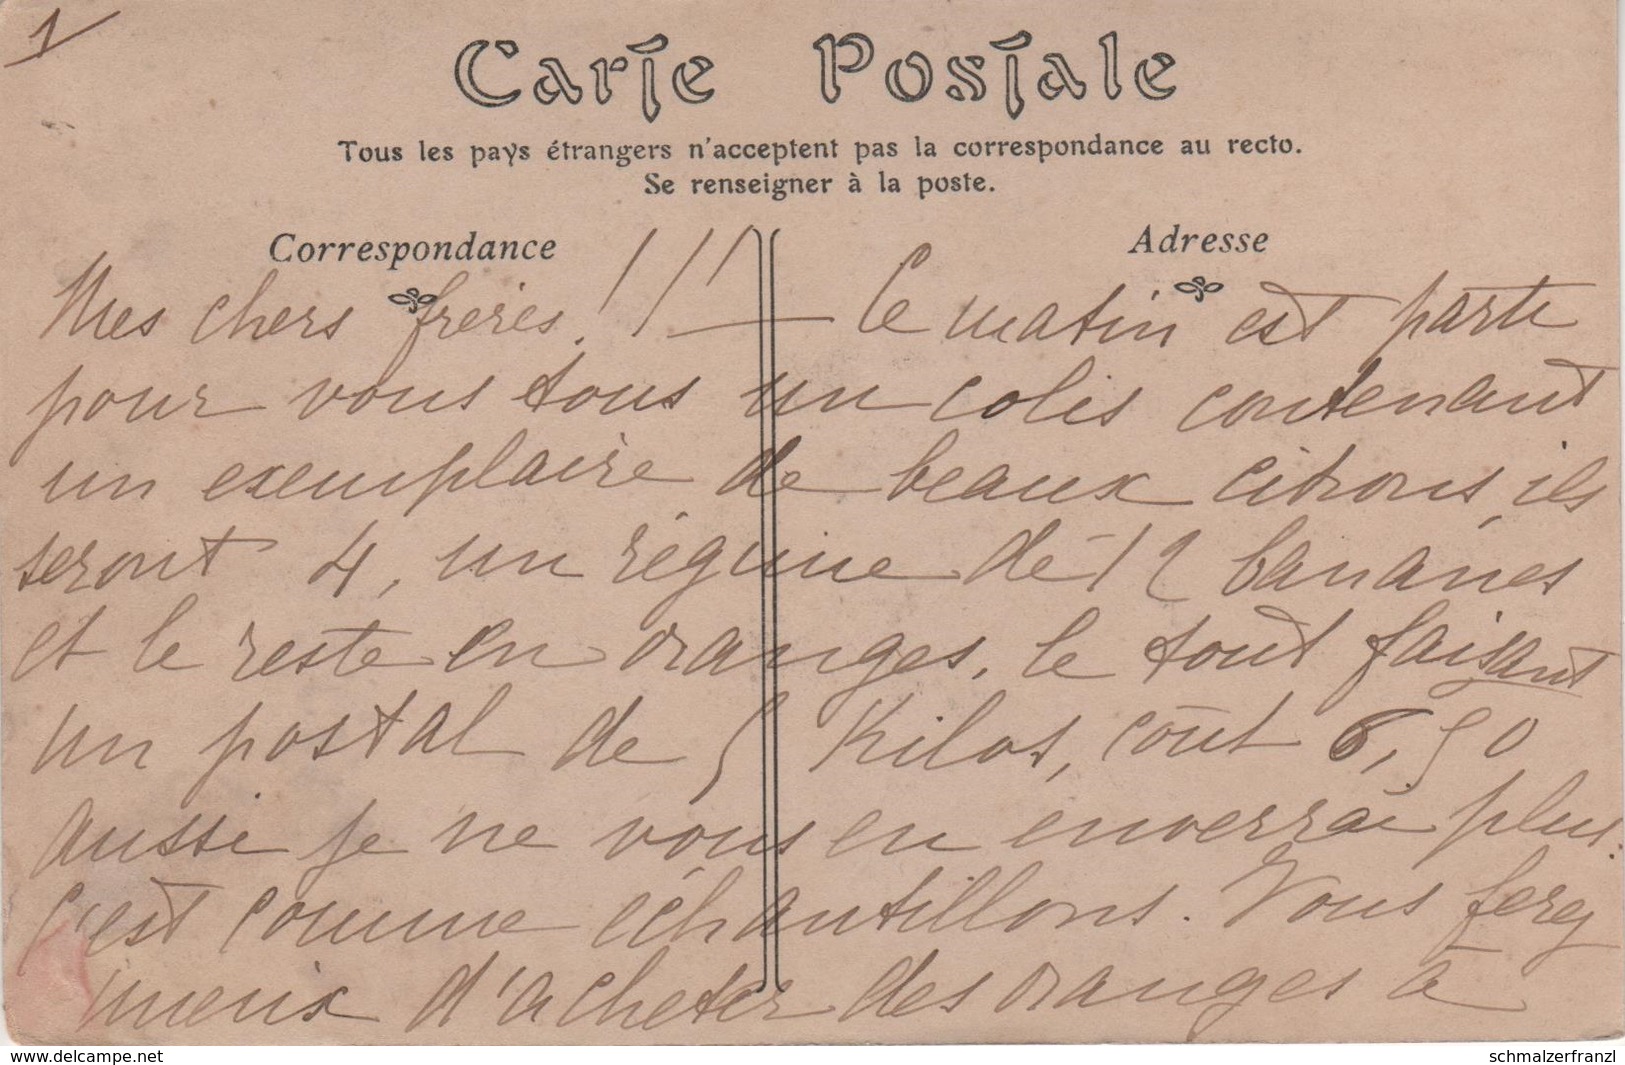 1
Carte Postale
Tous les pays étrangers n'acceptent pas la correspondance au recto.
Se renseigner à la poste.
Correspondance
Adresse
Mes chers frères.!!! — Ce matin est parti
pour vous tous un colis contenant
un exemplaire de beaux citrons, ils
seront 4, un régime de 12 bananes
et le reste en oranges, le tout faisant
un postal de 5 Kilos, coût 6,50
aussi je ne vous en enverrai plus.
C'est comme échantillons. Vous ferez
mieux d'acheter des oranges à
www.delcampe.net
schmalzerfranzl